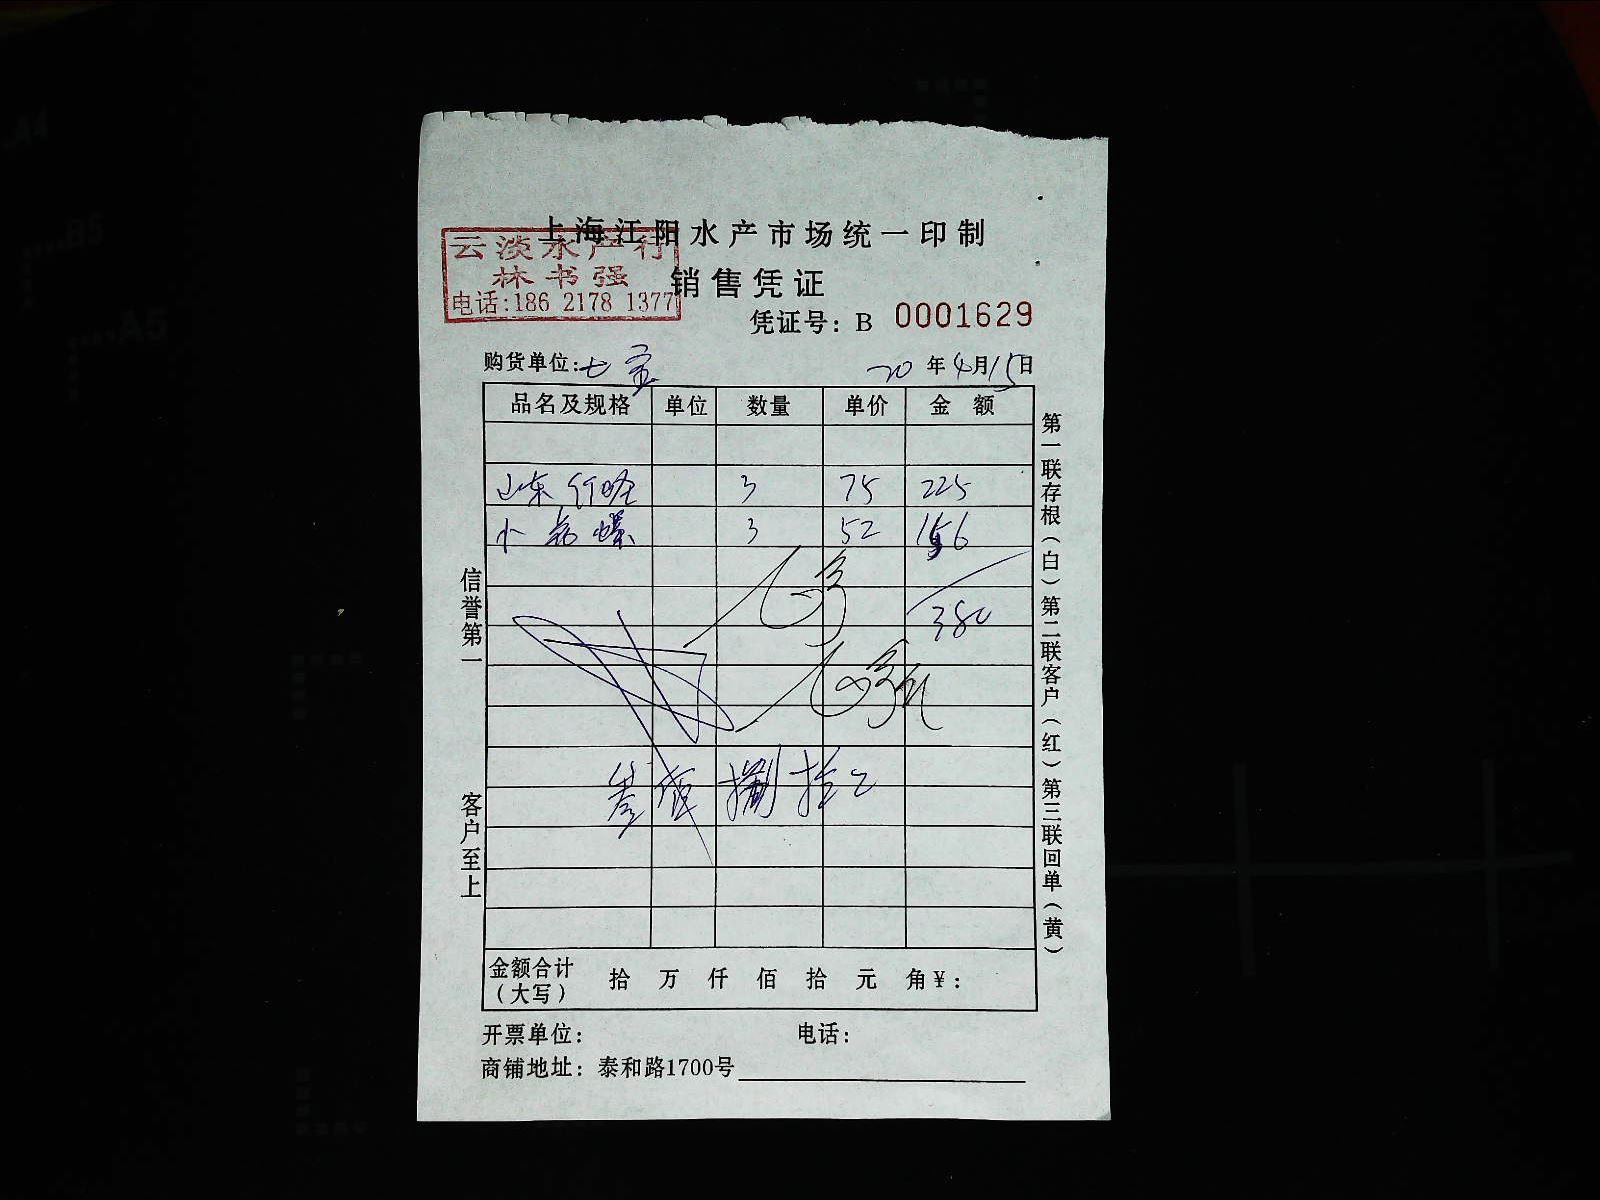 上海江阳水产市场统一印制
云淡水产行
林书强
电话:186 2178 1377
销售凭证
凭证号: B 0001629
购货单位:七宝 20年4月15日
品名及规格 单位 数量 单价 金额
山东竹蛏 3 75 225
小 螺 3 52 156
380
叁佰捌拾元
金额合计(大写) 拾 万 仟 佰 拾 元 角¥:
开票单位: 电话:
商铺地址: 泰和路1700号
信誉第一 客户至上
第一联存根(白)第二联客户(红)第三联回单(黄)
A4
B5
A5